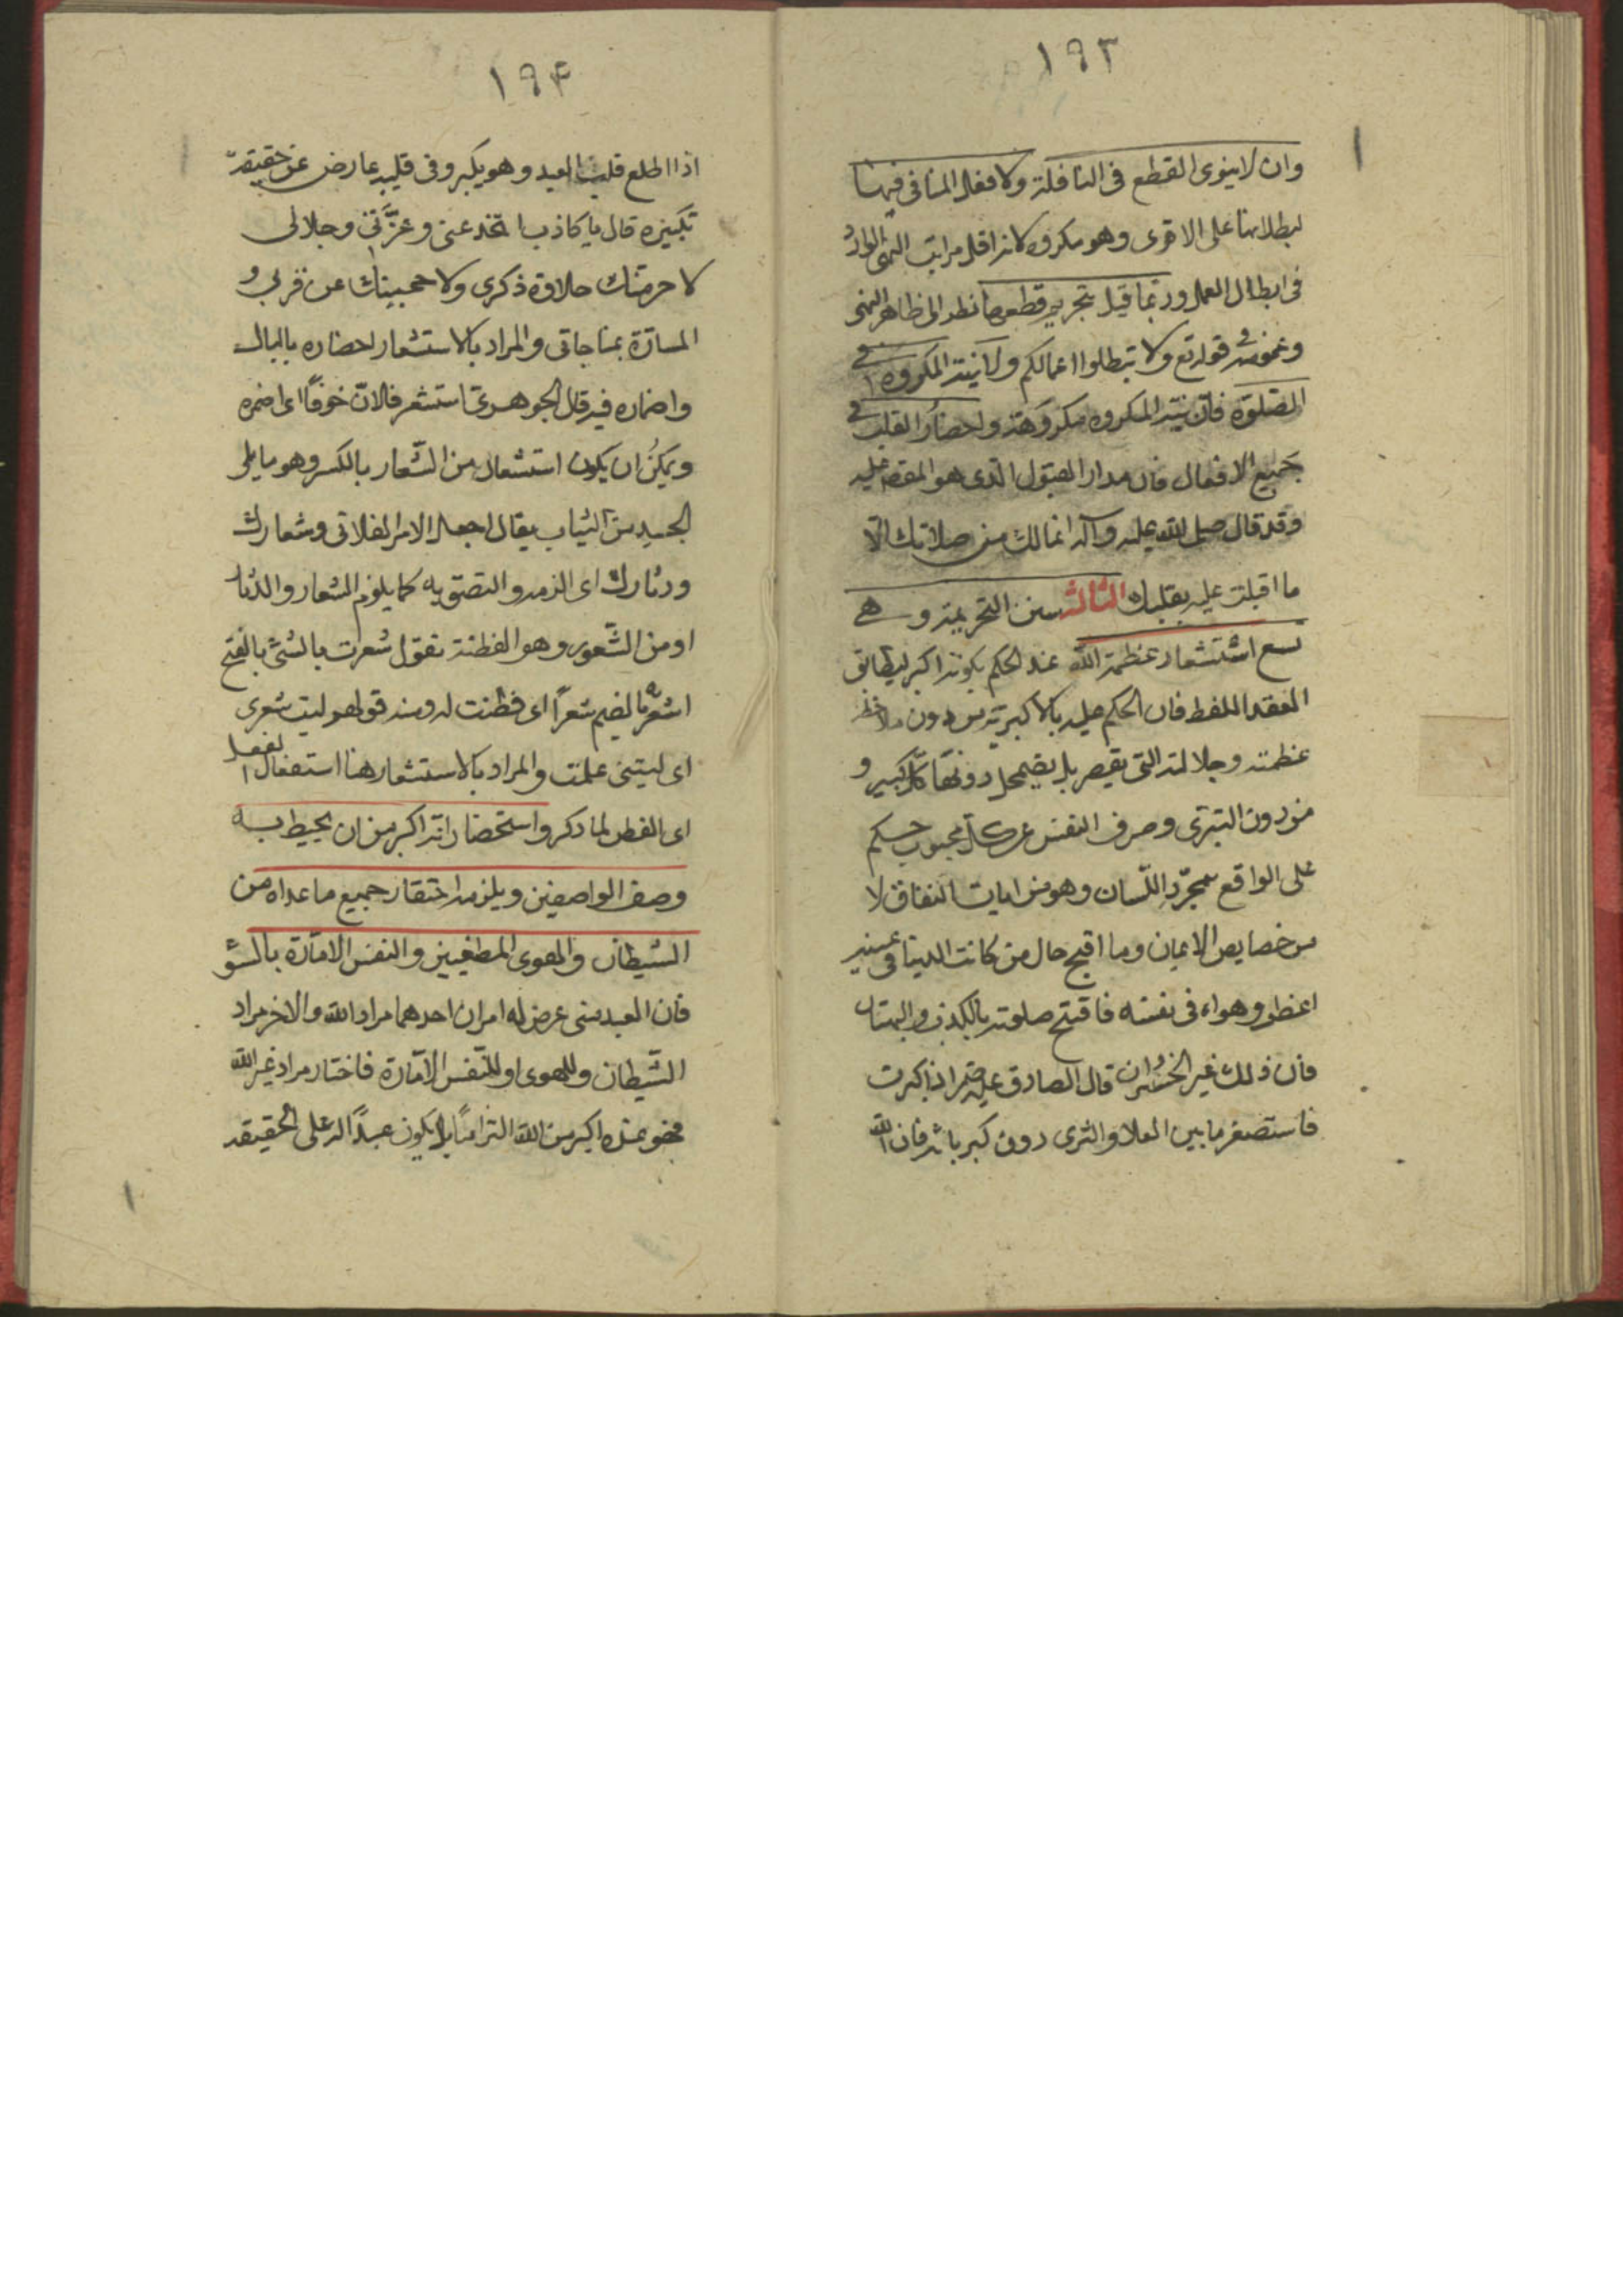 ١٩٣
وان لا ينوى القطع فى النافلة ولا فعل المنافى فيها
لبطلانها على الاقوى وهو مكروه لانه اقل مراتب النهى الوارد
فى ابطال العمل وربما قيل بتحريم قطعها نظرا الى ظاهر النهى
وعمومه فى قوله تع ولا تبطلوا اعمالكم ولا نية المكروه فى
الصلوة فان نية المكروه مكروهة واحضار القلب فى
جميع الافعال فان مدار القبول الذى هو المقصد عليه
وقد قال صلى الله عليه وآله انما لك من صلاتك الّا
ما اقبلت عليه بقلبك الثالث سنن التحريمة وهى
تسع استشعار عظمة الله عند الحكم بكونه اكبر ليطابق
العقد اللفظ فان الحكم عليه بالاكبرية من دون ملاحظة
عظمته وجلالته التى يقصر بل يضمحل دونها كل كبير و
من دون التبرى وصرف النفس عن كل محبوب حكم
على الواقع بمجرّد اللّسان وهو من ايات النفاق لا
من خصايص الايمان وما اقبح حال من كانت الدينا فى عينيه
اعظم وهواه فى نفسه فافتتح صلوته بالكذب والبهتان
فان ذلك غير الخسران قال الصادق عليه اذا كبرت
فاستصغر ما بين العلا والثرى دون كبريائه فان الله
١٩۴
اذا اطلع قلب العبد وهو يكبر وفى قلبه عارض عن حقيقة
تكبيره قال يا كاذب اتخدعنى وعزّتى وجلالى
لاحرمنك حلاوة ذكرى ولاحجبينك عن قربى و
المسارّة بمناجاتى والمراد بالاستشعار احضاره بالبال
واضماره فيه قال الجوهرىّ استشعر فلان خوفًا اى اضمره
ويمكن ان يكون استشعال من الشّعار بالكسر وهو ما يلى
الجسد من الثياب يقال اجعل الامر الفلانى وشعارك
ودثارك اى الزمه والتصق به كما يلزم الشعار والدثار
او من الشّعور وهو الفطنة تقول شعرت بالشئ بالفتح
اشعر بالضم شعرًا اى فطنت له ومنه قولهم ليت شعرى
اى ليتنى علمت والمراد بالاستشعار هنا استفعال الفعل
اى الفطن لما ذكر واستحضار انّه اكبر من ان يحيط به
وصف الواصفين ويلزمه احتقار جميع ما عداه من
الشيطان والهوى المطغيين والنفس الامّارة بالسّؤ
فان العبد متى عرض له امران احدهما مراد الله والاخر مراد
الشّيطان والهوى او للنّفس الامّارة فاختار مراد غير الله
فهو عنده اكبر من الله التزامًا بل يكون عبدًا له على الحقيقة